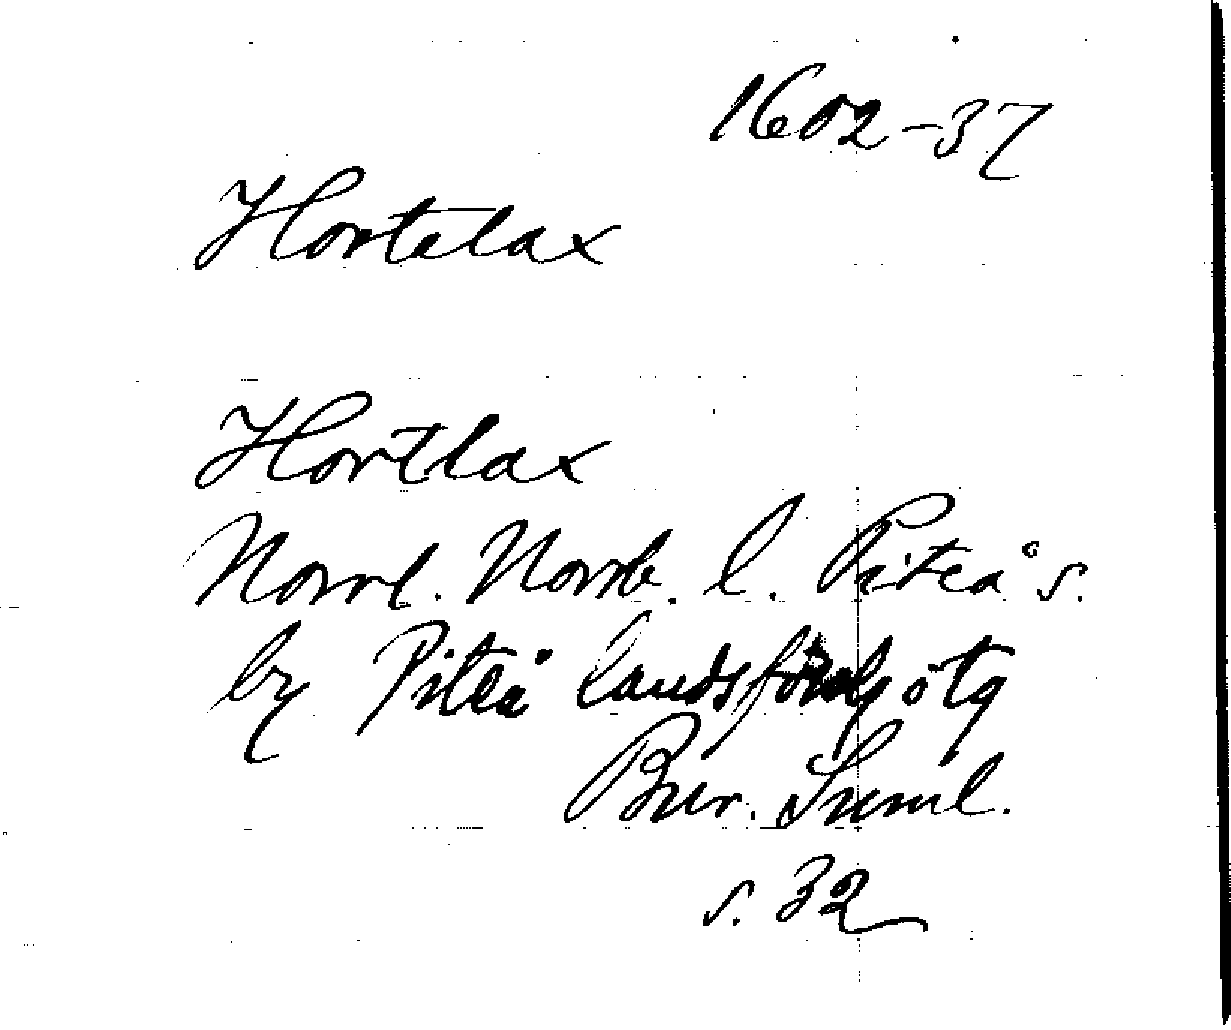 1602-37
Hortelax
Hortlax
Norrl. Norrb. l. Piteå s.
by Piteå landsförs
Bur. Suml.
s. 32